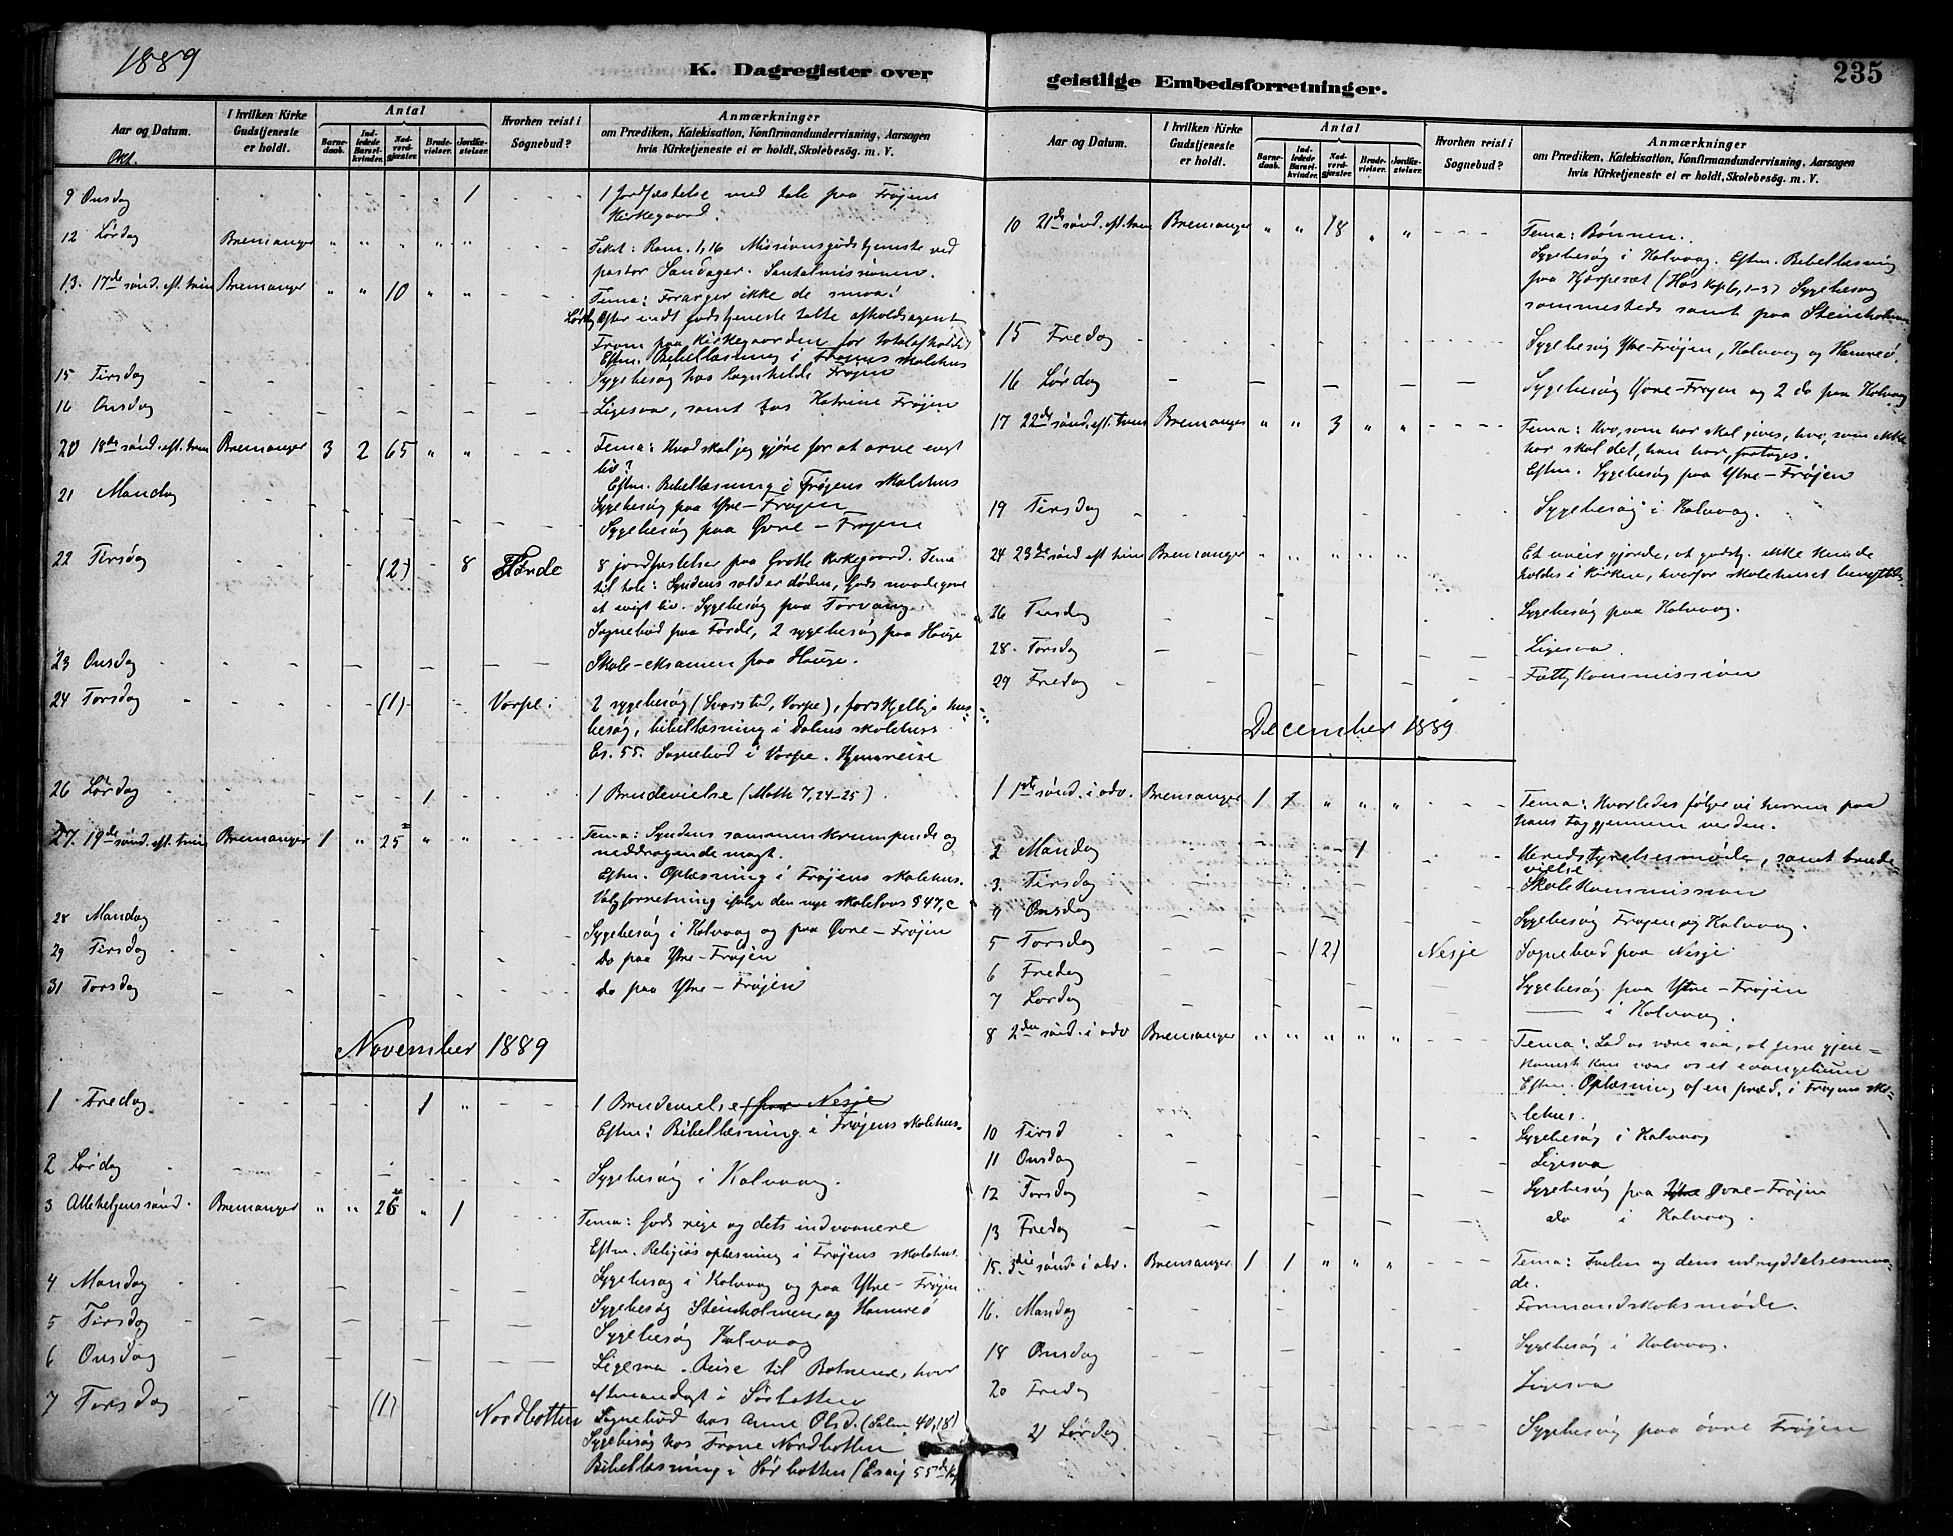 1889
K. Dagregister over
Aar og Datum.
I hvilken Kirke Gudstjeneste er holdt.
Antal
Barnedaab.
Indledede Barselkvinder.
Nadverdgjæster.
Brudevielser.
Jordfæstelser.
Hvorhen reist i Sognebud?
Anmærkninger
om Prædiken, Katekisation, Konfirmandundervisning, Aarsagen
hvis Kirketjeneste ei er holdt, Skolebesøg. m. V.
Okt.
9 Onsdag 1 1 jordfæstelse med tale paa Frøjens
Kirkegaard.
12 Lørdag Bremanger " " " " " Tekst: Rom. 1,16 Missionsgudstjeneste ved
pastor Sandager. Santalmissionen.
13. 17de sønd. eft. trin Bremanger " " 10 " " Tema: Forarger ikke de smaa!
Efter endt gudstjeneste talte afholdsagent
From paa Kirkegaarden for totalafhold
Eftm. Bibellæsning i Frøjens skolehus
15 Tirsdag Sygebesøg hos Ragnhilde Frøjen
16 Onsdag Ligesaa, samt hos Katrine Frøjen
20 18de sønd. eft. trin Bremanger 3 2 65 " " Tema: Hvad skal jeg gjøre for at arve evigt
liv?
Eftm. Bibellæsning i Frøjens skolehus
21 Mandag Sygebesøg paa Ytre-Frøjen
Sygebesøg paa Øvre-Frøjen
22 Tirsdag (2) 8 Førde 8 jordfæstelser paa Grotle Kirkegaard. Tema
til tale: Syndens sold er døden, Guds naadegave
et evigt liv. Sygebesøg paa Torvang.
Sognebud paa Førde, 2 sygebesøg paa Hauge
23 Onsdag Skole-eksamen paa Hauge.
24 Torsdag (1) Vorpe 2 sygebesøg (Svarstad, Vorpe), forskjellige hus-
besøg, bibellæsning i Dalens skolehus
Es. 55. Sognebud i Vorpe. Hjemreise
26 Lørdag 1 1 Brudevielse (Math 7,24-25)
27. 19de sønd. eft. trin Bremanger 1 " 25 " " Tema: Syndens sammenkrumpende og
neddragende magt.
Eftm. Oplæsning i Frøjens skolehus.
Valgforretning ifølge den nye skolelovs § 47, c
28 Mandag Sygebesøg i Kalvaag og paa Øvre-Frøjen
29 Tirsdag Do paa Ytre-Frøjen
31 Torsdag do paa Ytre-Frøjen
November 1889
1 Fredag 1 " 1 Brudevielse (paa Nesje
Eftm: Bibellæsning i Frøjens skolehus.
2 Lørdag Sygebesøg i Kalvaag.
3 Allehelgenssønd. Bremanger " " 26 " 1 Tema: Guds rige og dets indvaanere
Eftm. Religiøs oplæsning i Frøjens skolehus.
4 Mandag Sygebesøg i Kalvaag og paa Ytre-Frøjen
5 Tirsdag Sygebesøg Steinholmen og Hamreø
6 Onsdag Sygebesøg Kalvaag
7 Torsdag (1) Nordbotten Ligesaa. Reise til Botnene, hvor
i Sørbotten
Sognebud hos Anne Olsd. (Salm. 40,18)
Sygebesøg hos Nordbotten
Bibellæsning i Sørbotten (Esaj 55de Kp)
geistlige Embedsforretninger.
235
Aar og Datum.
I hvilken Kirke Gudstjeneste er holdt.
Antal
Barnedaab.
Indledede Barselkvinder.
Nadverdgjæster.
Brudevielser.
Jordfæstelser.
Hvorhen reist i Sognebud?
Anmærkninger
om Prædiken, Katekisation, Konfirmandundervisning, Aarsagen
hvis Kirketjeneste ei er holdt, Skolebesøg. m. V.
10 21de sønd. eft. trin Bremanger " " 18 " " Tema: Bønnen.
Sygebesøg i Kalvaag. Eftm. Bibellæsning
paa (Hos Kap 6, 1-3) Sygebesøg
sammesteds samt paa Steinholmen
15 Fredag Sygebesøg Ytre-Frøjen, Kalvaag og Hamreø.
16 Lørdag Sygebesøg Øvre-Frøjen og 2 do paa Kalvaag
17 22de sønd. eft. trin Bremanger " " 3 " " Tema: Hvo, som har skal gives, hvo, som ikke
har skal det, han har, fratages.
Eftm. Sygebesøg paa Ytre-Frøjen
19 Tirsdag Sygebesøg i Kalvaag.
24 23de sønd. eft. trin Bremanger " " " " " Et uveir gjorde, at gudstj. ikke kunde
holdes i kirken, hvorfor skolehuset benyttedes
26 Tirsdag Sygebesøg paa Kalvaag.
28. Torsdag Ligesaa.
29 Fredag Fattigkommission
December 1889
1 1ste sønd. i adv. Bremanger 1 1 " " " Tema: Hvorledes følge vi herren paa
hans tog gjennem verden.
2 Mandag 1 Herredsstyrelsesmøde, samt brude-
vielse
3. Tirsdag Skolekommission
4 Onsdag Sygebesøg Frøjen og Kalvaag.
5 Torsdag (2) Nesje Sognebud paa Nesje
6 Fredag Sygebesøg paa Ytre-Frøjen
7 Lørdag i Kalvaag.
8 2den sønd. i adv Bremanger " " " " " Tema: Lad os være saa, at Jesu gjen-
komst kan være os et evangelium
Eftm. Oplæsning af en præd. i Frøjens sko-
lehus.
10 Tirsd Sygebesøg i Kalvaag
11 Onsdag Ligesaa
12 Torsdag Sygebesøg paa Ytre Øvre-Frøjen
13 Fredag do i Kalvaag.
15. 3die sønd. i adv. Bremanger 1 1 " " " Tema: Tvilen og dens udryddelsesmaa-
de.
16. Mandag Formandskabsmøde.
18 Onsdag Sygebesøg i Kalvaag.
20 Fredag Ligesaa
21 Lørdag Sygebesøg paa øvre Frøjen